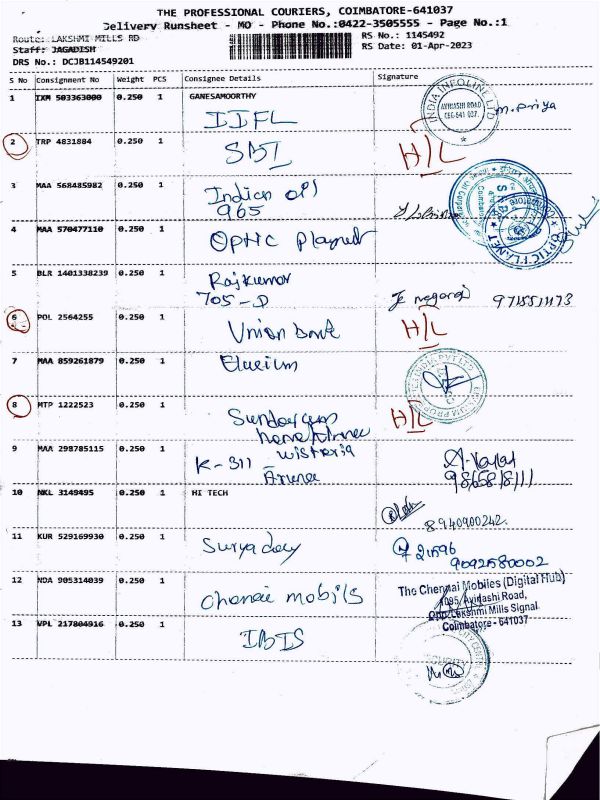 THE PROFESSIONAL COURIERS, COIMBATORE-641037
Delivery Runsheet - MO - Phone No.:0422-3505555 - Page No.:1
Route: LAKSHMI MILLS RD
RS No.: 1145492
Staff: JAGADISH
RS Date: 01-Apr-2023
DRS No.: DCJB114549201
S No Consignment No Weight PCS Consignee Details Signature
1 IXM 503363000 0.250 1 GANESAMOORTHY
IIFL
INDIA INFOLINE LTD
AVINASHI ROAD
CBE-641 037.
M. Priya
2 TRP 4831884 0.250 1
SBI
H/L
3 MAA 568485982 0.250 1
Indian oil
965
4 MAA 570477110 0.250 1
Optic planet
OPTIC PLANET
5 BLR 1401338239 0.250 1
Rajkumar
705-D
6 POL 2564255 0.250 1
Union bank
H/L
7 MAA 859261879 0.250 1
Elueium
8 MTP 1222523 0.250 1
Sundaram
home finance
H/L
9 MAA 298785115 0.250 1
wisteria
K-311
Aruna
10 NKL 3149495 0.250 1 HI TECH
8940900242.
11 KUR 529169930 0.250 1
Suryaday
9092580002
12 NDA 905314039 0.250 1
Chenai mobils
The Chennai Mobiles (Digital Hub)
1095, Avinashi Road,
Opp. Lakshmi Mills Signal
Coimbatore - 641037
13 VPL 217804916 0.250 1
IBIS